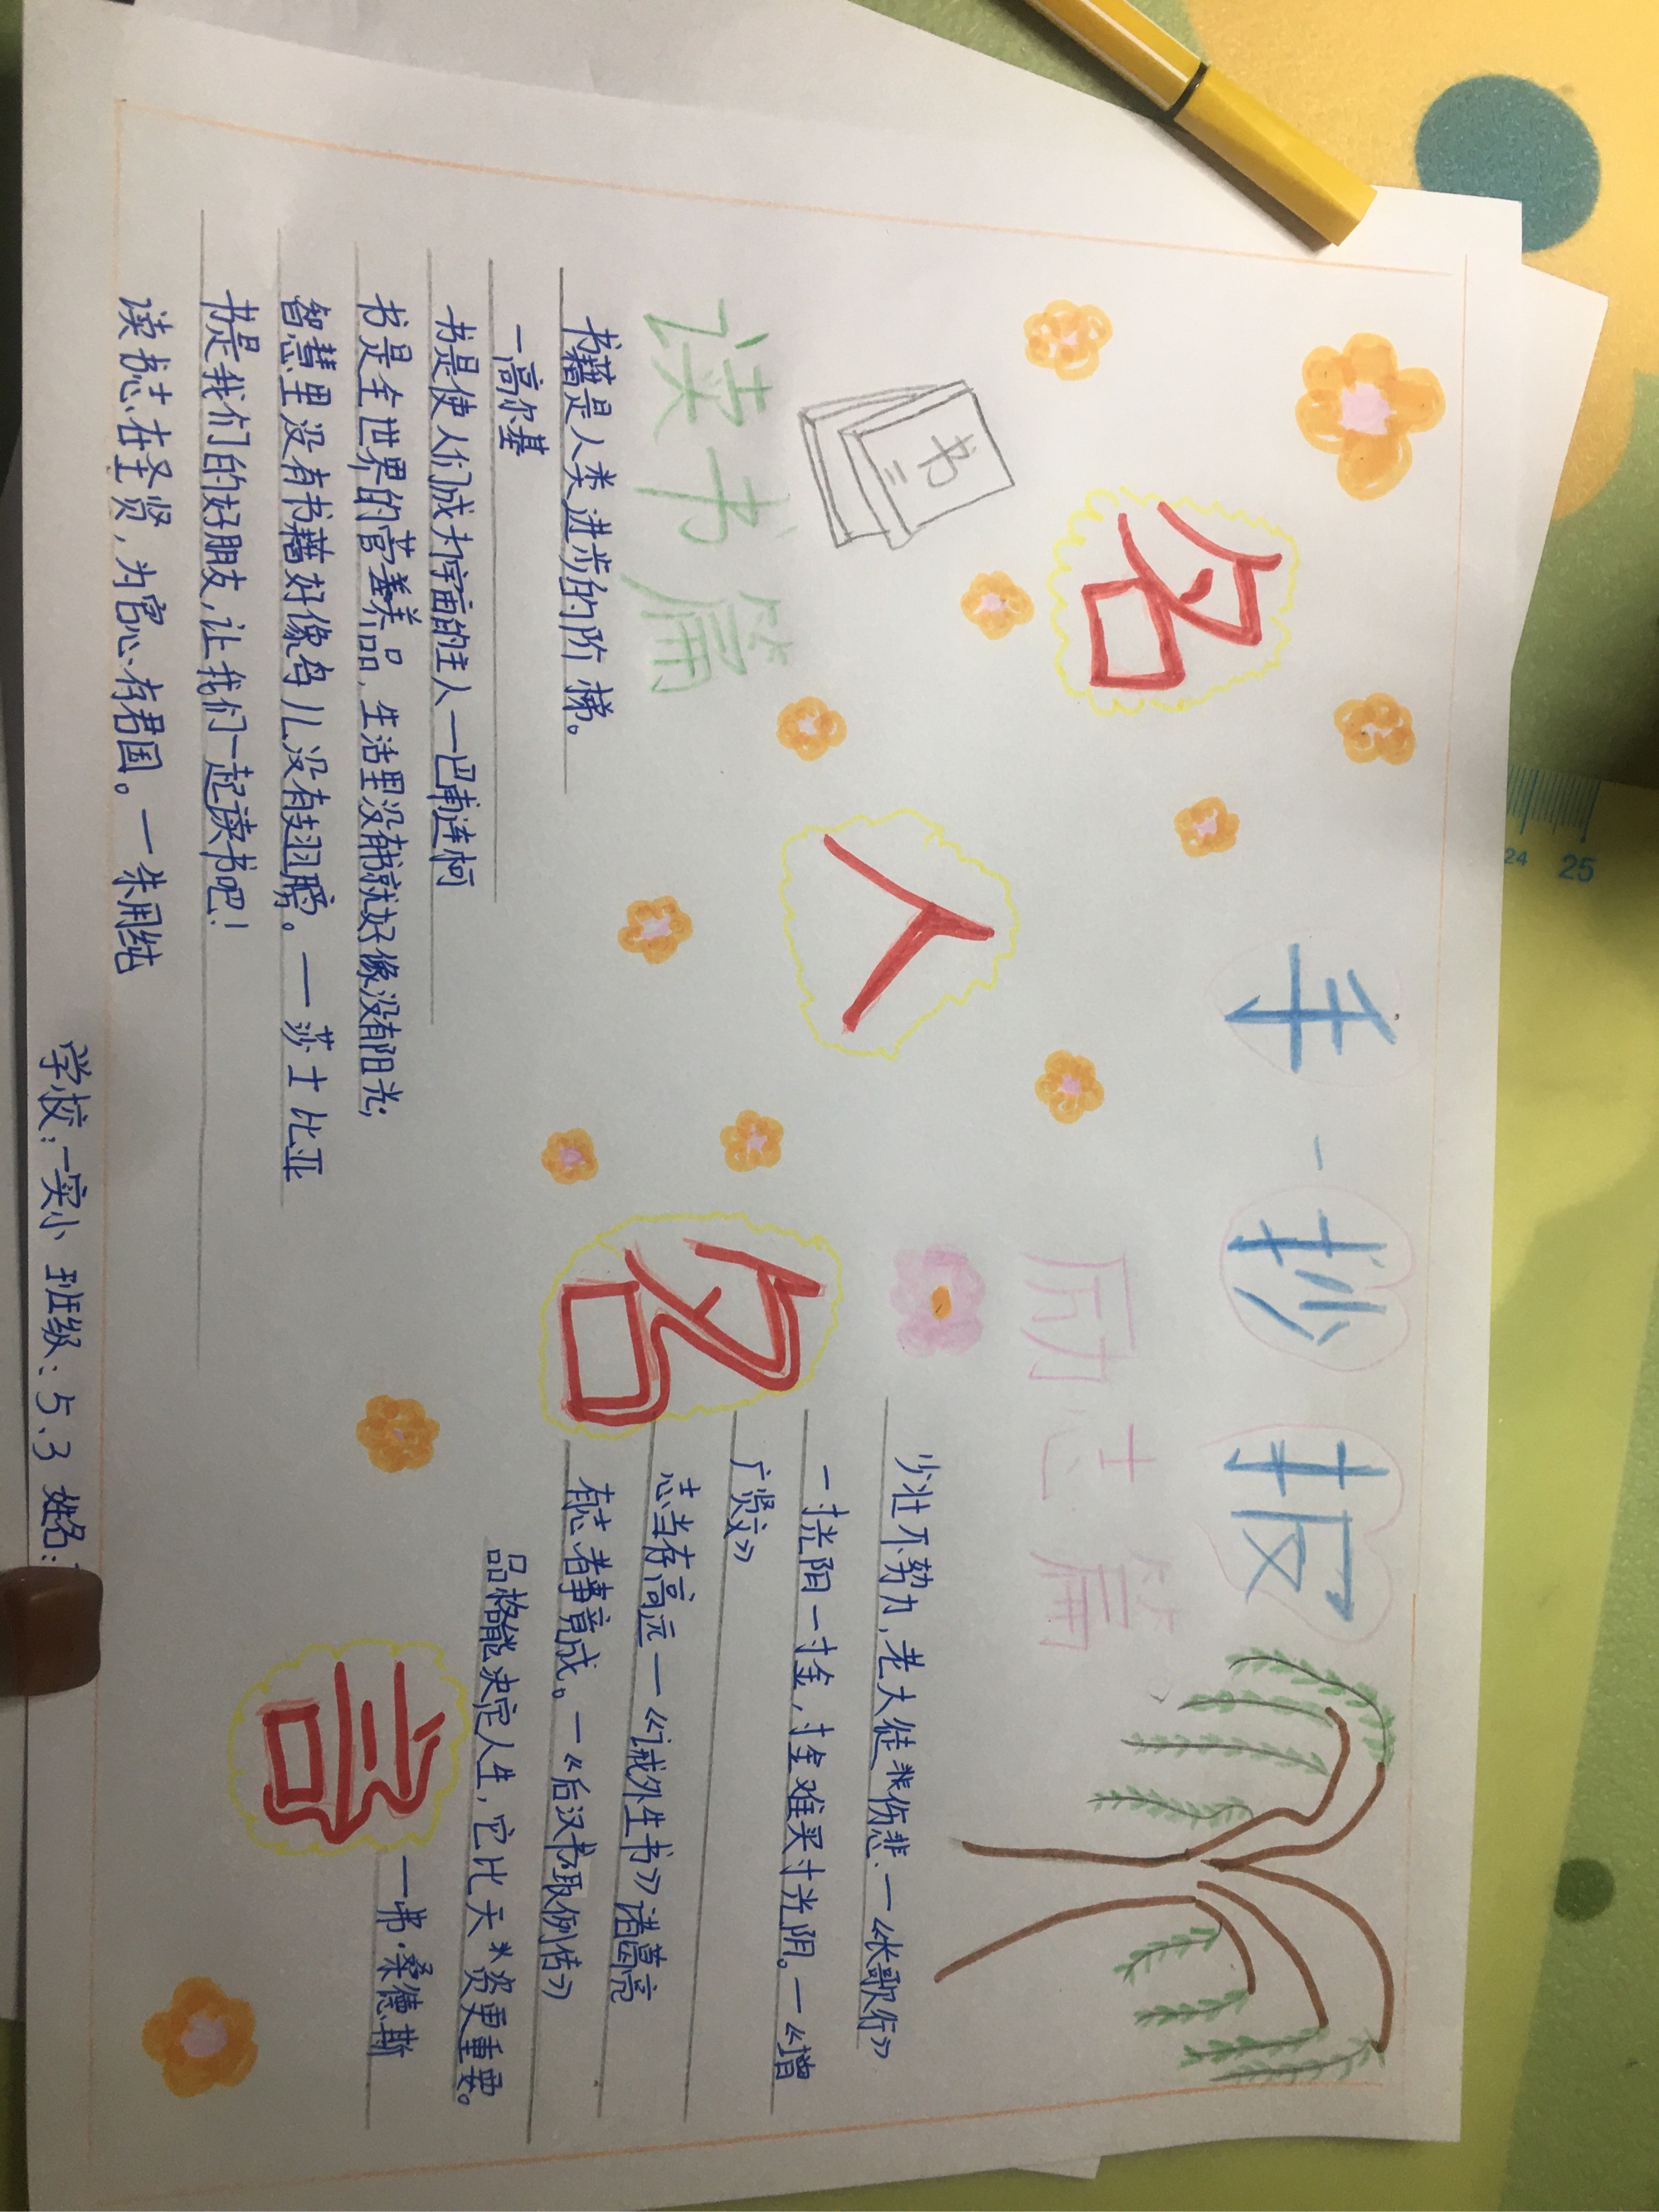 手抄报
名人名言
读书篇
书
书籍是人类进步的阶梯。
一高尔基
书是使人们成为宇宙的主人一巴甫连柯
书是全世界的营养品，生活里没有书就好像没有阳光；
智慧里没有书籍好像鸟儿没有翅膀。一莎士比亚
书是我们的好朋友，让我们一起读书吧！
读书志在圣贤，为官心存君国。一朱用纯
励志篇
少壮不努力，老大徒悲伤悲.一《长歌行》
一寸光阳一寸金，寸金难买寸光阴。一《增
广贤文》
志当存高远一《诫外生书》诸葛亮
有志者事竟成。一《后汉书·耿
传》
品格能决定人生，它比天资更重要。
一弗·桑德斯
学校：一实小 班级：5.3 姓名：
24 25